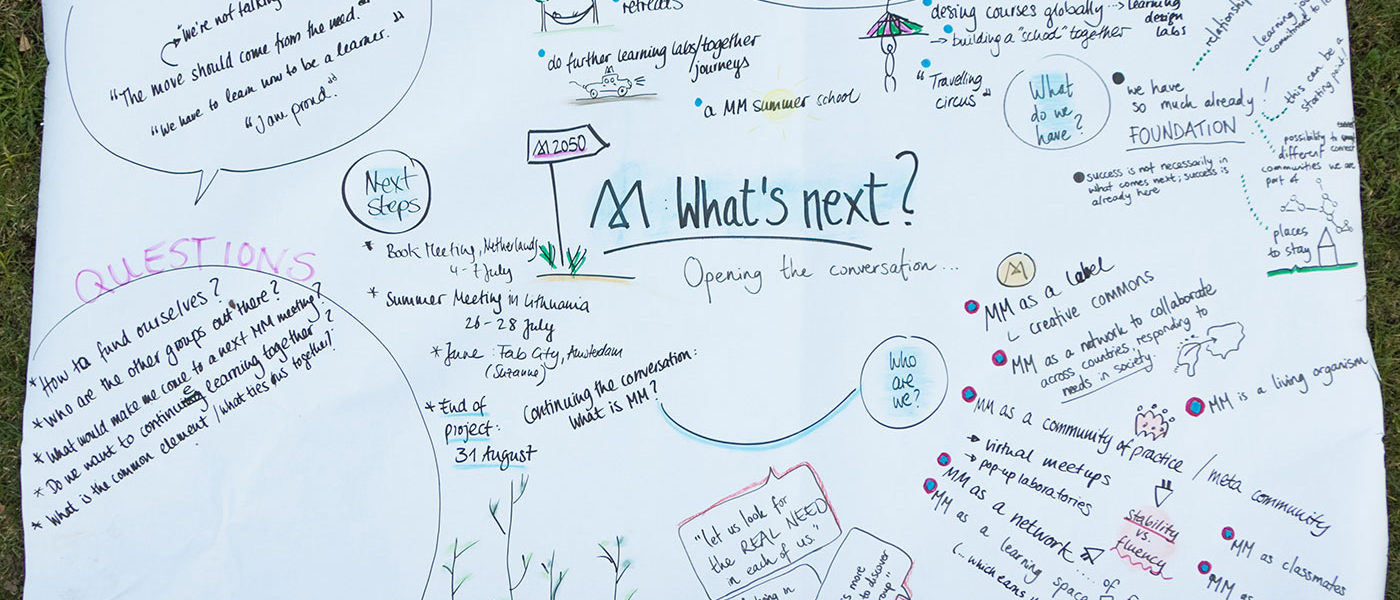 "we're not talking
"The move should come from the need."
"We have to learn how to be a learner."
"I am proud."
retreats
do further learning labs/together
journeys
a MM summer school
desing courses globally → learning
design
labs
→ building a "school" together
"Travelling
circus"
What
do we
have?
we have
so much already!
FOUNDATION
success is not necessarily in
what comes next; success is
already here
relationship
this can be a
starting point!
possibility to
different
communities we are
part of
places
to stay
Next
steps
M 2050
M: What's next?
Opening the conversation...
* Book Meeting, Netherlands
4-7 July
* Summer Meeting in Lithuania
26-28 July
* June: Fab City, Amsterdam
(Suzanne)
* End of
project:
31 August
Continuing the conversation:
what is MM?
QUESTIONS
* How to fund ourselves?
* Who are the other groups out there?
* What would make me come to a next MM meeting?
* Do we want to continue learning together?
* What is the common element / what ties us together?
Who
are
we?
M
MM as a label
creative commons
MM as a network to collaborate
across countries, responding to
needs in society.
MM is a living organism
MM as a community of practice / meta community
→ virtual meetups
→ pop-up laboratories
Stability
vs.
fluency
MM as a network
MM as a learning space
of
(..which earns
MM as classmates
MM as
"let us look for
the REAL NEED
in each of us."
is more
to discover